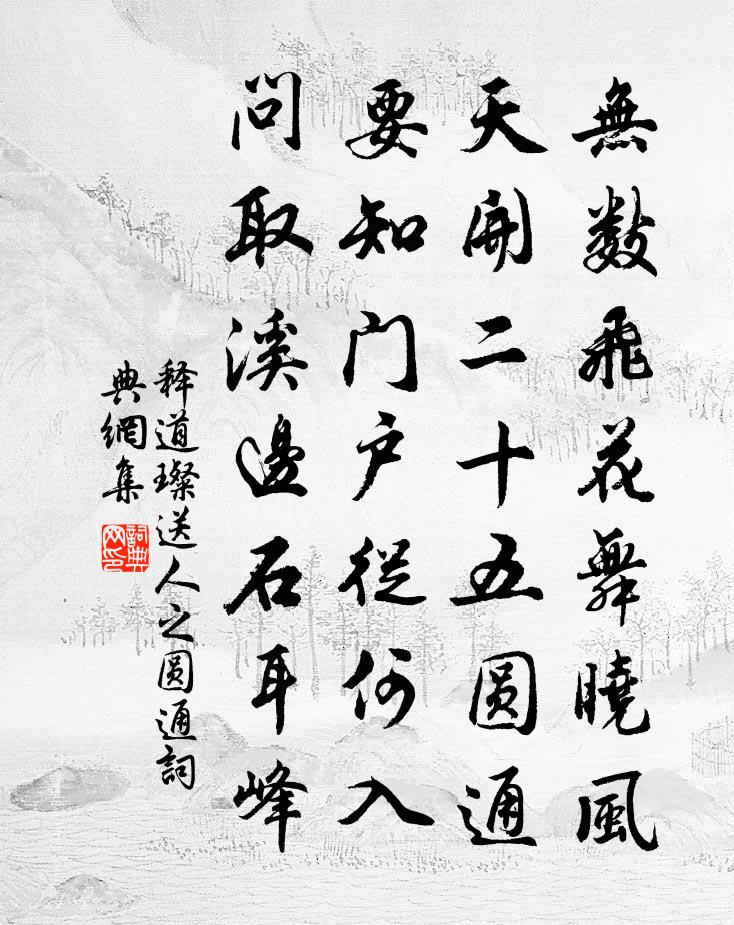 無數飛花舞曉風
天開二十五圓通
要知門户從何入
問取溪邊石耳峰
释道璨送人之圆通詞
典網集
詞典
网印